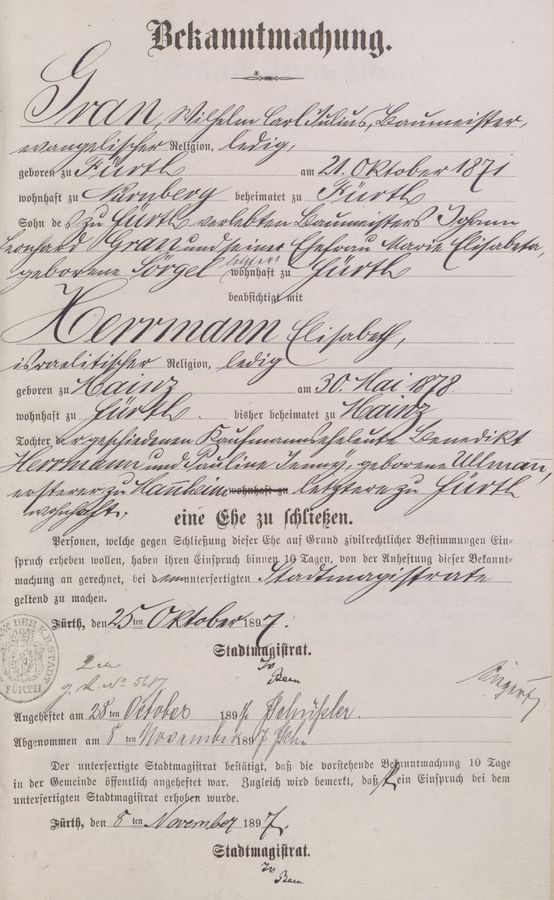 Bekanntmachung.
Grau, Wilhelm Carl Julius, Baumeister,
evangelischer Religion, ledig,
geboren zu Fürth am 21. Oktober 1871
wohnhaft zu Nürnberg beheimatet zu Fürth
Sohn des zu Fürth verlebten Baumeisters Johann
Leonhard Grau und seiner Ehefrau Marie Elisabeta,
geborene Sörgel letztere wohnhaft zu Fürth
beabsichtigt mit
Herrmann Elisabeth,
israelitischer Religion, ledig
geboren zu Mainz am 30. Mai 1878
wohnhaft zu Fürth. bisher beheimatet zu Mainz
Tochter der geschiedenen Kaufmannseheleute Benedikt
Herrmann und Pauline Jenny, geborene Ullmann,
ersterer zu Mannheim wohnhaft zu letztere zu Fürth
wohnhaft,
eine Ehe zu schließen.
Personen, welche gegen Schließung dieser Ehe auf Grund zivilrechtlicher Bestimmungen Ein-
spruch erheben wollen, haben ihren Einspruch binnen 10 Tagen, von der Anheftung dieser Bekannt-
machung an gerechnet, bei dem unterfertigten Stadtmagistrate
geltend zu machen.
Fürth, den 25ten Oktober 1897.
Stadtmagistrat.
FÜRTH
g. R. No 5687
Angeheftet am 28ten October 1897
Abgenommen am 8ten November 1897
Der unterfertigte Stadtmagistrat bestätigt, daß die vorstehende Bekanntmachung 10 Tage
in der Gemeinde öffentlich angeheftet war. Zugleich wird bemerkt, daß kein Einspruch bei dem
unterfertigten Stadtmagistrat erhoben wurde.
Fürth, den 8ten November 1897.
Stadtmagistrat.